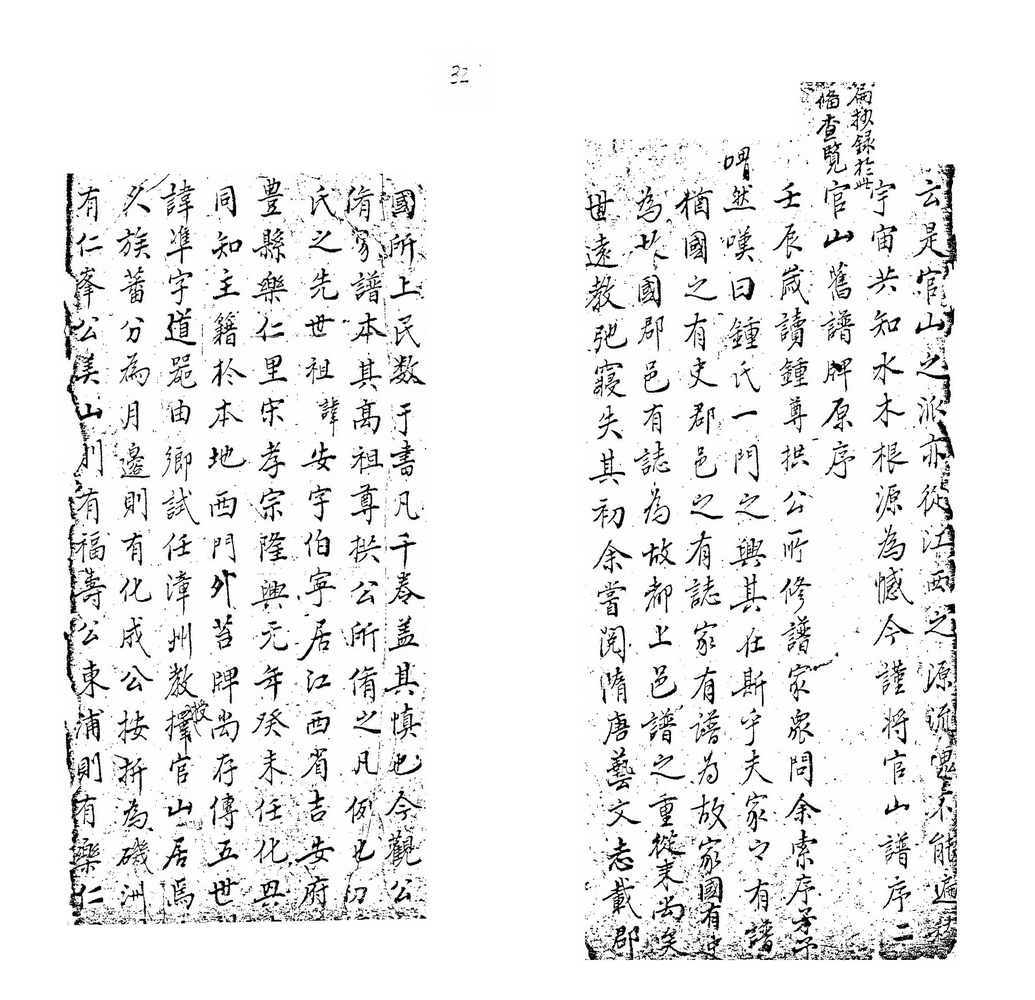 32
云是官山之派亦從江西之源流不能遍
宇宙共知水木根源為憾今謹將官山譜序二
扁抄錄於此
俻查覽
官山舊譜牌原序
壬辰嵗讀鍾尊拱公所修譜家衆問余索序予
喟然嘆曰鍾氏一門之興其在斯乎夫家之有譜
猶國之有史郡邑之有誌家有譜為故家國有史
為故國郡邑有誌為故都上邑譜之重從来尚矣
世遠教弛寢失其初余嘗閱隋唐藝文志載郡
國所上民数于書凡千卷盖其慎也今觀公
脩家譜本其髙祖尊拱公所脩之凡例也
氏之先世祖諱安字伯寧居江西省吉安府
豊縣樂仁里宋孝宗隆興元年癸未任化
同知主籍於本地西門外苔牌尚存傳五世
諱準字道器由鄉試任漳州教授擇官山居焉
乆族蕃分為月邊則有化成公按捹為磯洲
有仁峯公美山則有福壽公東浦則有樂仁